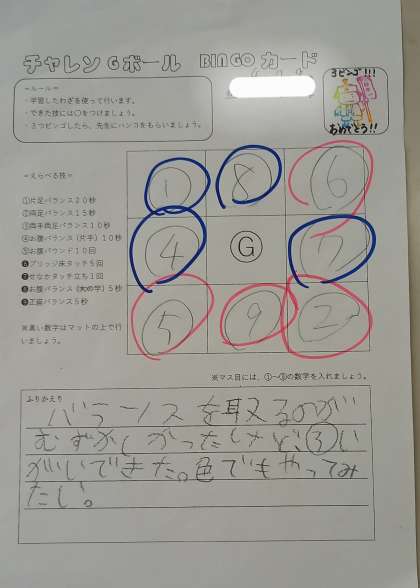 チャレンGボール BINGOカード
＝ルール＝
・学習したわざを使って行います。
・できた技には○をつけましょう。
・３つビンゴしたら、先生にハンコをもらいましょう。
３ビンゴ!!!
おめでとう!!
＝えらべる技＝
①片足バランス２０秒
②両足バランス１５秒
③両手両足バランス１０秒
④お腹バランス（片手）１０秒
⑤お腹バウンド１０回
❻ブリッジ床タッチ５回
❼せなかタッチ立ち１回
❽お腹バランス（大の字）５秒
❾正座バランス５秒
※黒い数字はマットの上で行
いましょう。
① ⑧ ⑥
④ Ⓖ ⑦
⑤ ⑨ ②
※マス目には、①～⑨の数字を入れましょう。
ふりかえり
バランスを取るのが
むずかしかったけど、③い
がいできた。色でもやってみ
たい。